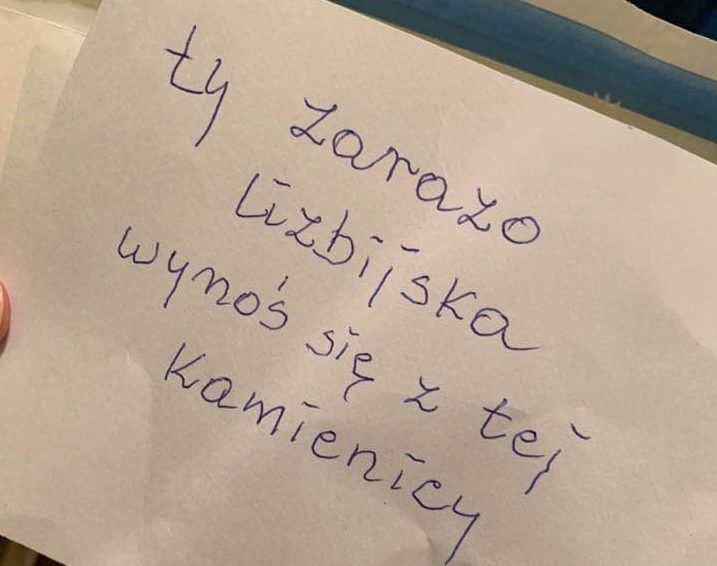 ty zarazo
lizbijska
wynoś się z tej
kamienicy